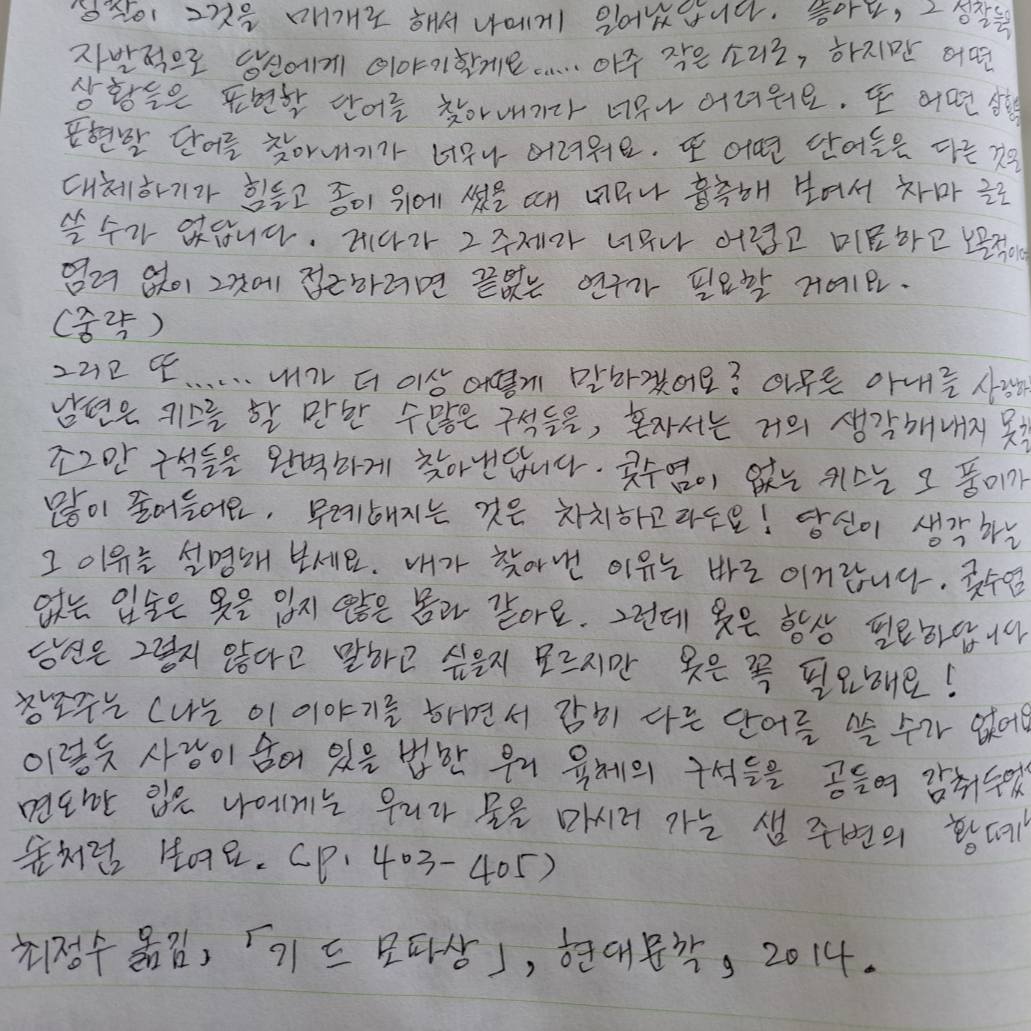 성찰이 그것을 매개로 해서 나에게 일어났답니다. 좋아요, 그 성찰들을
자발적으로 당신에게 이야기할게요..... 아주 작은 소리로, 하지만 어떤
상황들은 표현할 단어를 찾아내기다 너무나 어려워요. 또 어떤 상황들
표현말 단어를 찾아내기가 너무나 어려워요. 또 어떤 단어들은 다른 것으
대체하기가 힘들고 종이 위에 썼을 때 너무나 흉측해 보여서 차마 글로
쓸 수가 없답니다. 게다가 그 주제가 너무나 어렵고 미묘하고
염려 없이 그것에 접근하려면 끝없는 연구가 필요할 거예요.
(중략)
그리고 또...... 내가 더 이상 어떻게 말하겠어요? 아무튼 아내를 사랑하
남편은 키스를 할 만한 수많은 구석들을, 혼자서는 거의 생각해내지 못할
조그만 구석들을 완벽하게 찾아낸답니다. 콧수염이 없는 키스는 그 풍미가
많이 줄어들어요. 무례해지는 것은 차치하고라도요! 당신이 생각하는
그 이유를 설명해 보세요. 내가 찾아낸 이유는 바로 이거랍니다. 콧수염
없는 입술은 옷을 입지 않은 몸과 같아요. 그런데 옷은 항상 필요하답니다
당신은 그렇지 않다고 말하고 싶을지 모르지만 옷은 꼭 필요해요!
창조주는 (나는 이 이야기를 하면서 감히 다른 단어를 쓸 수가 없어요
이렇듯 사랑이 숨어 있을 법한 우리 육체의 구석들을 공들여 감춰두었
면도한 입은 나에게는 우리가 물을 마시러 가는 샘 주변의 황폐
숲처럼 보여요. (p. 403-405)
최정수 옮김, 「기 드 모파상」, 현대문학, 2014.